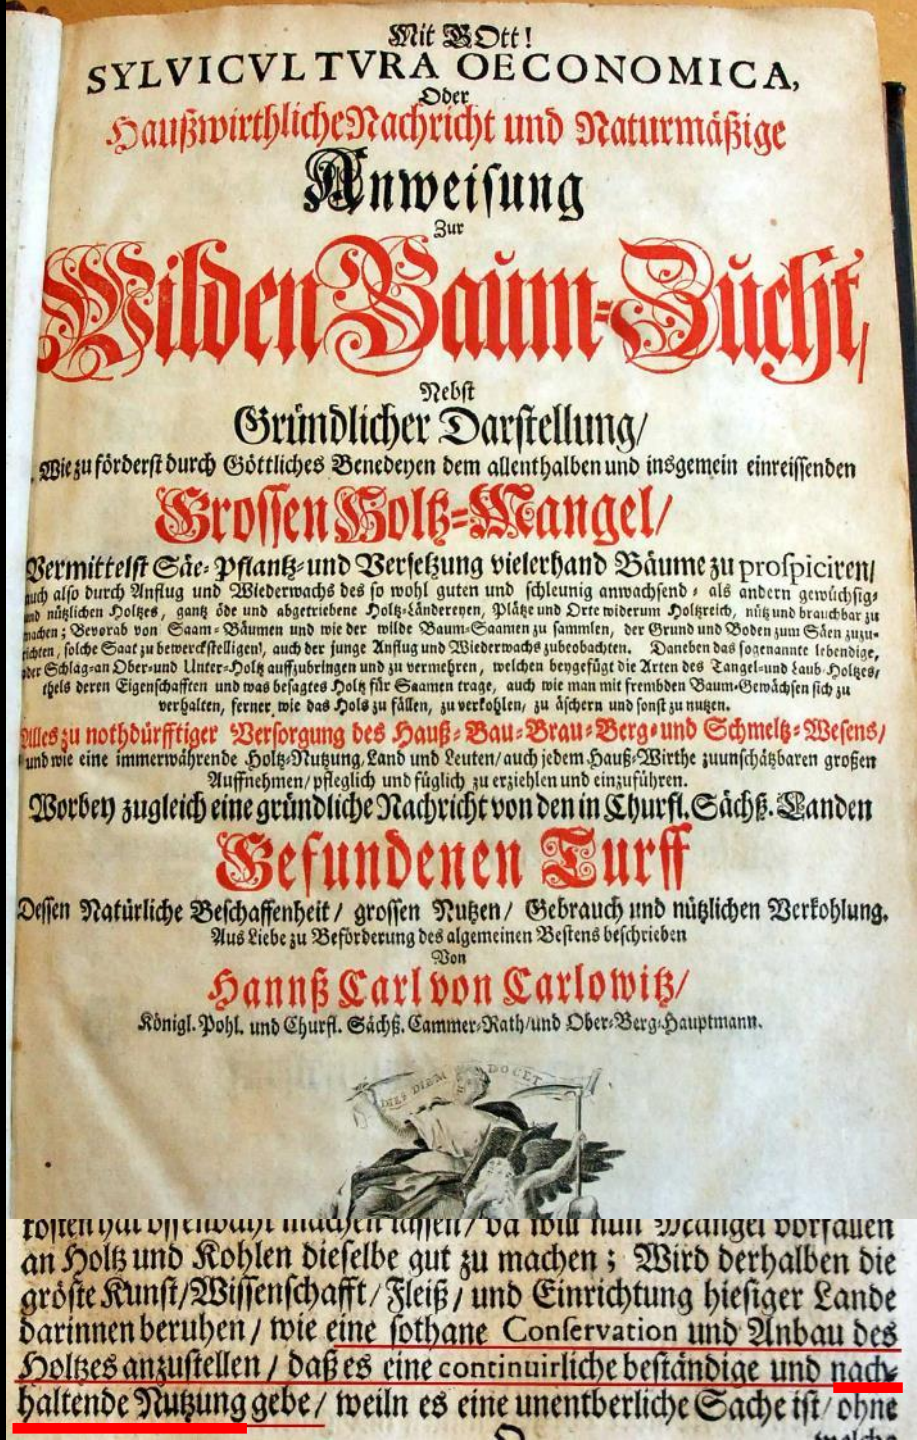 Mit GOtt!
SYLVICVLTVRA OECONOMICA,
Oder
Haußwirthliche Nachricht und Naturmäßige
Anweisung
Zur
Wilden Baum-Zucht,
Nebst
Gründlicher Darstellung/
Wie zu förderst durch Göttliches Benedeyen dem allenthalben und insgemein einreissenden
Grossen Holtz-Mangel/
Vermittelst Säe- Pflantz- und Versetzung vielerhand Bäume zu prospiciren/
auch also durch Anflug und Wiederwachs des so wohl guten und schleunig anwachsend- als andern gewüchsig-
und nützlichen Holtzes, gantz öde und abgetriebene Holtz-Ländereyen, Plätze und Orte widerum Holtzreich, nütz und brauchbar zu
machen; Bevorab von Saam-Bäumen und wie der wilde Baum-Saamen zu sammlen, der Grund und Boden zum Säen zuzu-
richten, solche Saat zu bewerckstelligen/, auch der junge Anflug und Wiederwachs zubeobachten. Daneben das sogenannte lebendige,
oder Schlag-an Ober- und Unter-Holtz auffzubringen und zu vermehren, welchen beygefügt die Arten des Tangel- und Laub-Holtzes/
theils deren Eigenschafften und was besagtes Holtz für Saamen trage, auch wie man mit frembden Baum-Gewächsen sich zu
verhalten, ferner wie das Holtz zu fällen, zu verkohlen, zu äschern und sonst zu nutzen.
Alles zu nothdürfftiger Versorgung des Hauß- Bau- Brau- Berg- und Schmeltz-Wesens/
und wie eine immerwährende Holtz-Nutzung, Land und Leuten/ auch jedem Hauß-Wirthe zuunschätzbaren großen
Auffnehmen/ pfleglich und füglich zu erziehlen und einzuführen.
Worbey zugleich eine gründliche Nachricht von den in Churfl. Sächß. Landen
Gefundenen Turff
Dessen Natürliche Beschaffenheit/ grossen Nutzen/ Gebrauch und nützlichen Verkohlung.
Aus Liebe zu Beförderung des algemeinen Bestens beschrieben
Von
Hannß Carl von Carlowitz/
Königl. Pohl. und Churfl. Sächß. Cammer-Rath/und Ober-Berg-Hauptmann.
DIES DIEM DOCET
Mangel vorfallen
an Holtz und Kohlen dieselbe gut zu machen; Wird derhalben die
gröste Kunst/Wissenschafft/Fleiß/ und Einrichtung hiesiger Lande
darinnen beruhen/ wie eine sothane Conservation und Anbau des
Holtzes anzustellen/ daß es eine continuirliche beständige und nach-
haltende Nutzung gebe/ weiln es eine unentberliche Sache ist/ ohne